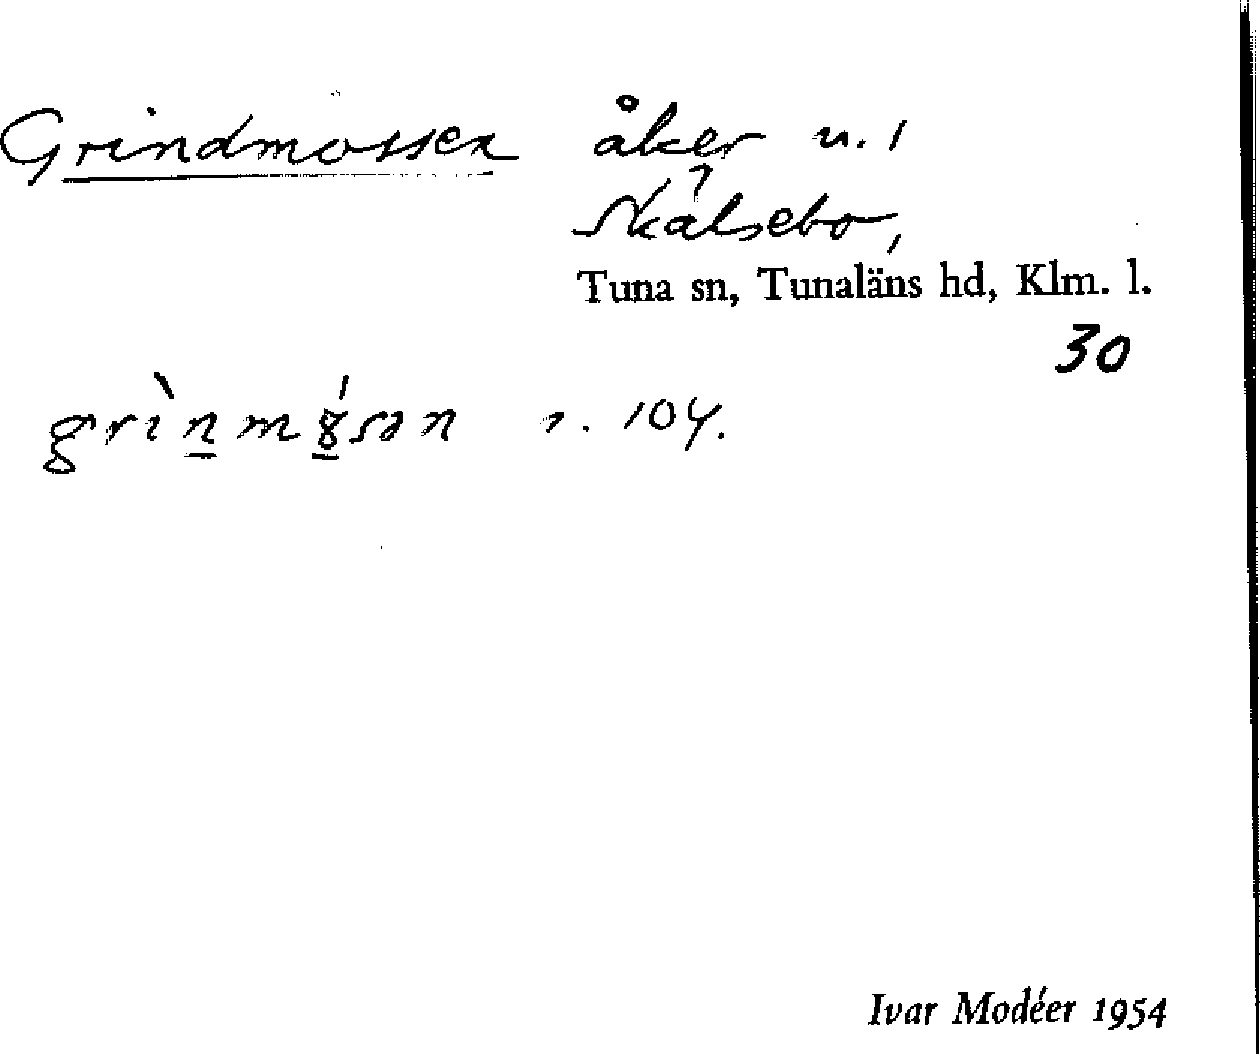 Grindmossen åker u. 1
Skålsebo,
Tuna sn, Tunaläns hd, Klm. l.
30
grìn̲mó̲sən r. 104.
Ivar Modéer 1954